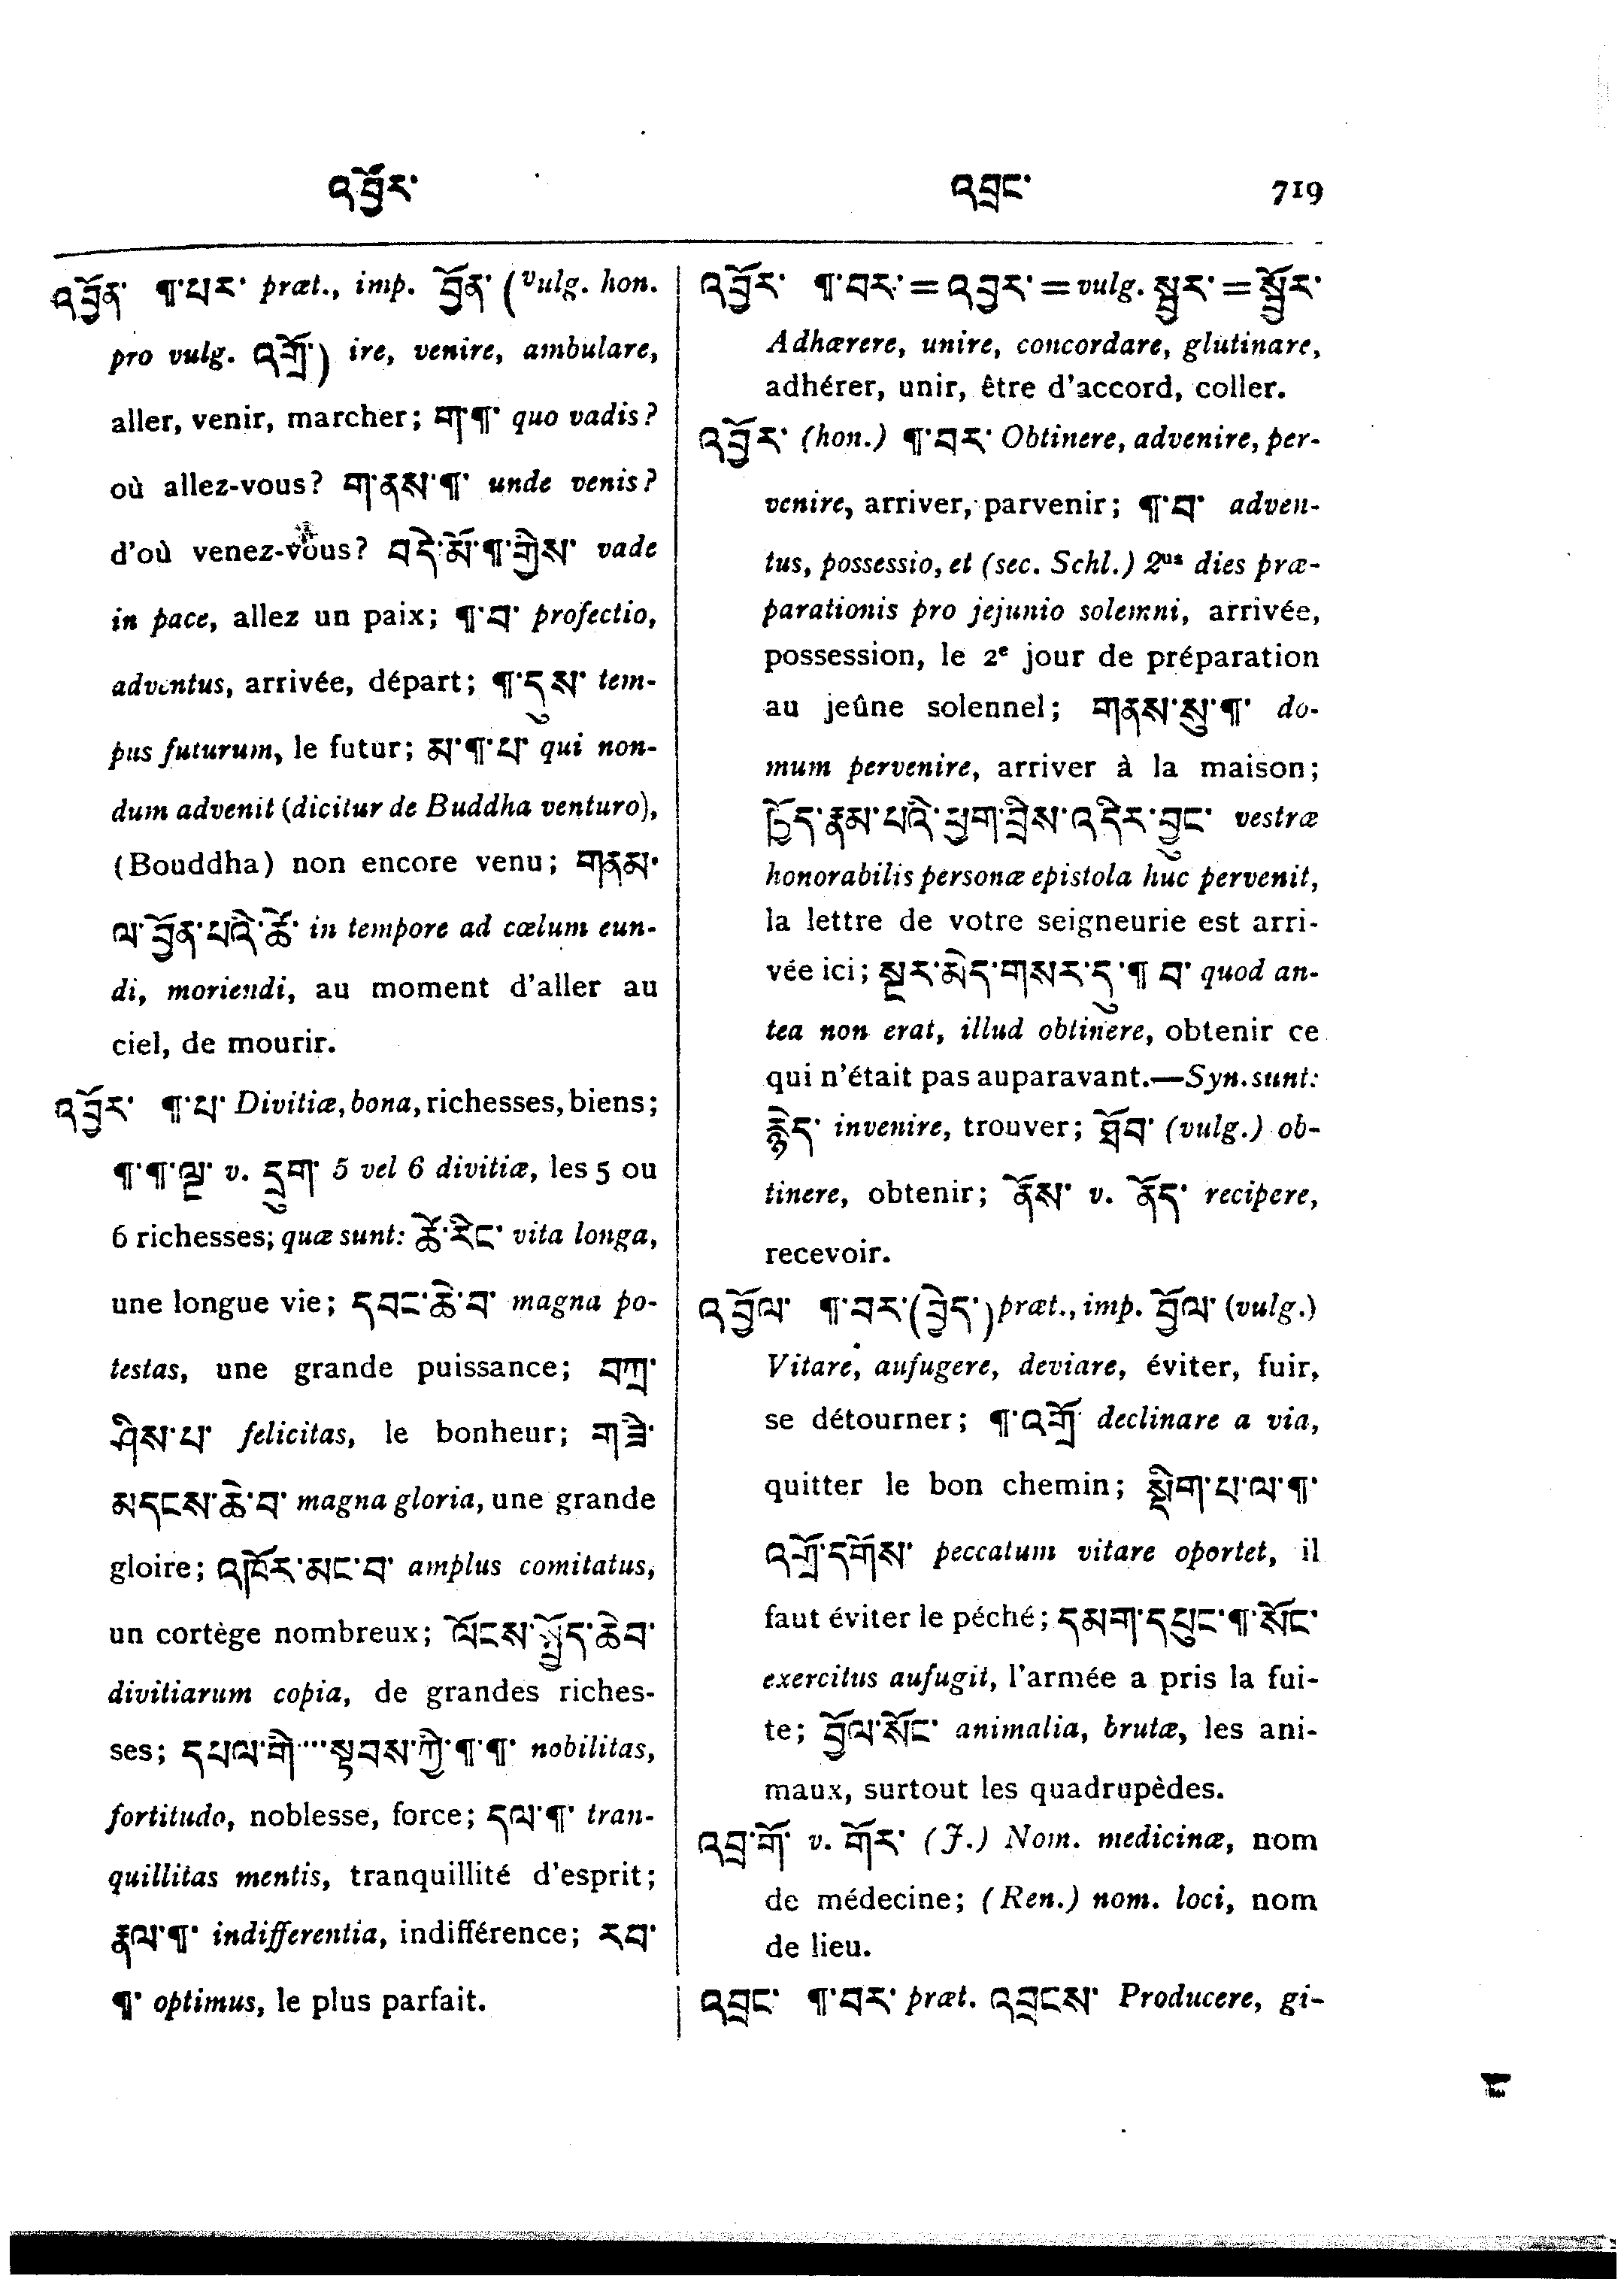 འབྱོར་ འབྲང་ 719
འབྱོན་ ¶་པར་ præt., imp. བྱོན་ (Vulg. hon.
pro vulg. འགྲོ་) ire, venire, ambulare,
aller, venir, marcher; ག་¶་ quo vadis?
où allez-vous? ག་ནས་¶་ unde venis?
d'où venez-vous? བདེ་མོ་¶་གྱིས་ vade
in pace, allez un paix; ¶་བ་ profectio,
adventus, arrivée, départ; ¶་དུས་ tem-
pus futurum, le futur; མ་¶་པ་ qui non-
dum advenit (dicitur de Buddha venturo),
(Bouddha) non encore venu; གནམ་
ལ་བྱོན་པའི་ཚེ་ in tempore ad cœlum eun-
di, moriendi, au moment d'aller au
ciel, de mourir.
འབྱོར་ ¶་པ་ Divitiæ, bona, richesses, biens;
¶་¶་ལྔ་ v. དྲུག་ 5 vel 6 divitiæ, les 5 ou
6 richesses; quæ sunt: ཚེ་རིང་ vita longa,
une longue vie; དབང་ཆེ་བ་ magna po-
testas, une grande puissance; བཀྲ་
ཤིས་པ་ felicitas, le bonheur; གཟི་
མདངས་ཆེ་བ་ magna gloria, une grande
gloire; འཁོར་མང་བ་ amplus comitatus,
un cortège nombreux; ལོངས་སྤྱོད་ཆེབ་
divitiarum copia, de grandes riches-
ses; དཔལ་གི་···སྟབས་ཀྱི་¶་¶་ nobilitas,
fortitudo, noblesse, force; དལ་¶་ tran-
quillitas mentis, tranquillité d'esprit;
རྣལ་¶་ indifferentia, indifférence; རབ་
¶་ optimus, le plus parfait.
འབྱོར་ ¶་བར་ = འབྱར་ = vulg. སྦྱར་ = སྦྱོར་
Adhærere, unire, concordare, glutinare,
adhérer, unir, être d'accord, coller.
འབྱོར་ (hon.) ¶་བར་ Obtinere, advenire, per-
venire, arriver, parvenir; ¶་བ་ adven-
tus, possessio, et (sec. Schl.) 2us dies præ-
parationis pro jejunio solemni, arrivée,
possession, le 2e jour de préparation
au jeûne solennel; གནས་སུ་¶་ do-
mum pervenire, arriver à la maison;
ཁྱོད་རྣམ་པའི་ཕྱག་བྲིས་འདིར་བྱུང་ vestræ
honorabilis personæ epistola huc pervenit,
la lettre de votre seigneurie est arri-
vée ici; སྔར་མེད་གསར་དུ་¶ བ་ quod an-
tea non erat, illud obtinere, obtenir ce
qui n'était pas auparavant.—Syn. sunt:
རྙེད་ invenire, trouver; ཐོབ་ (vulg.) ob-
tinere, obtenir; ནོས་ v. ནོད་ recipere,
recevoir.
འབྱོལ་ ¶་བར་(བྱེད་) præt., imp. བྱོལ་ (vulg.)
Vitare, aufugere, deviare, éviter, fuir,
se détourner; ¶་འགྲོ་ declinare a via,
quitter le bon chemin; སྡིག་པ་ལ་¶་
འགྲོ་དགོས་ peccatum vitare oportet, il
faut éviter le péché; དམག་དཔུང་¶་སོང་
exercitus aufugit, l'armée a pris la fui-
te; བྱོལ་སོང་ animalia, brutæ, les ani-
maux, surtout les quadrupèdes.
འབྲ་གོ་ v. གོར་ (J.) Nom. medicinæ, nom
de médecine; (Ren.) nom. loci, nom
de lieu.
འབྲང་ ¶་བར་ præt. འབྲངས་ Producere, gi-